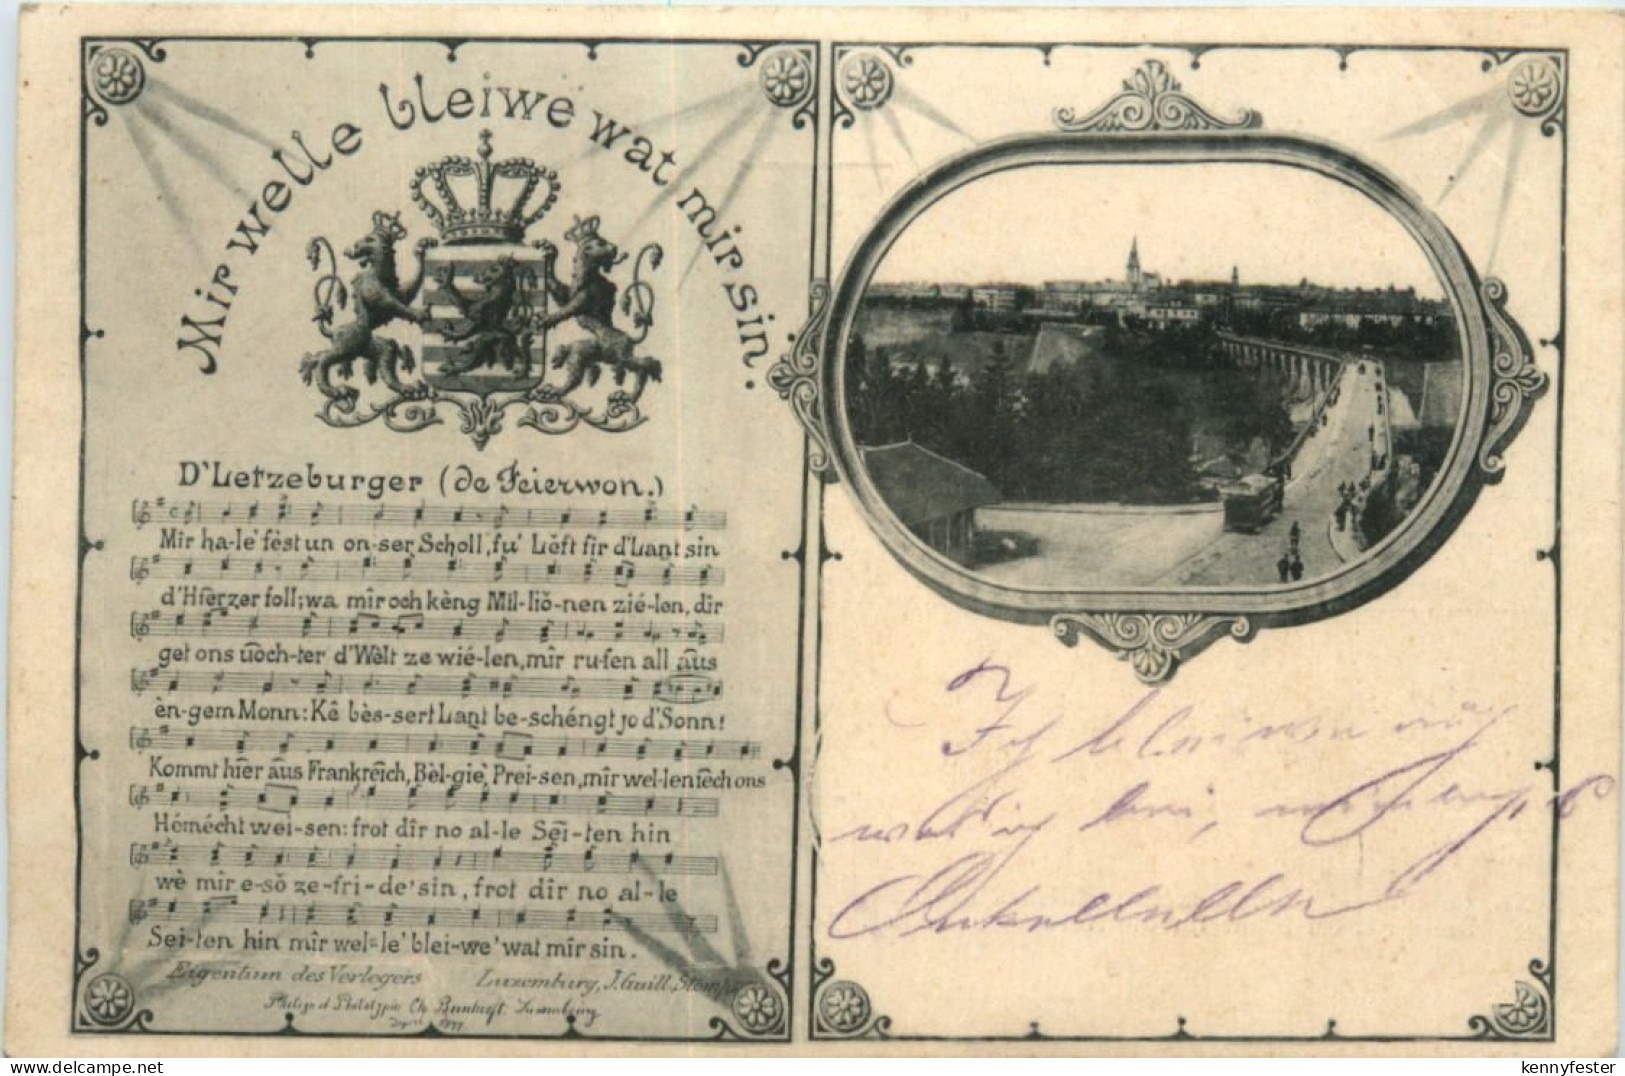 Mir welle bleiwe wat mir sin.
D'Letzeburger (de Feierwon.)
Mîr ha-le' fèst un on-ser Scholl, fu' Lèft fir d'Lant sin
d'Hierzer foll; wa mîr och kèng Mil-liŏ-nen zié-len, dîr
get ons ûoch-ter d'Wèlt ze wié-len, mîr ru-fen all aus
èn-gem Monn: Kê bès-sert Lant be-schéngt jo d'Sonn!
Kommt hîer aus Frankreich, Bèl-gie', Prei-sen, mîr wel-len iech ons
Hémécht wei-sen: frot dîr no al-le Sei-ten hin
wè mîr e-sŏ ze-fri-de' sin, frot dîr no al-le
Sei-ten hin mîr wel=le' blei-we' wat mîr sin.
Eigentum des Verlegers Luxemburg, J. Guill.
Ch. Bernhoeft Luxemburg
Ich
delcampe.net
kennyfester